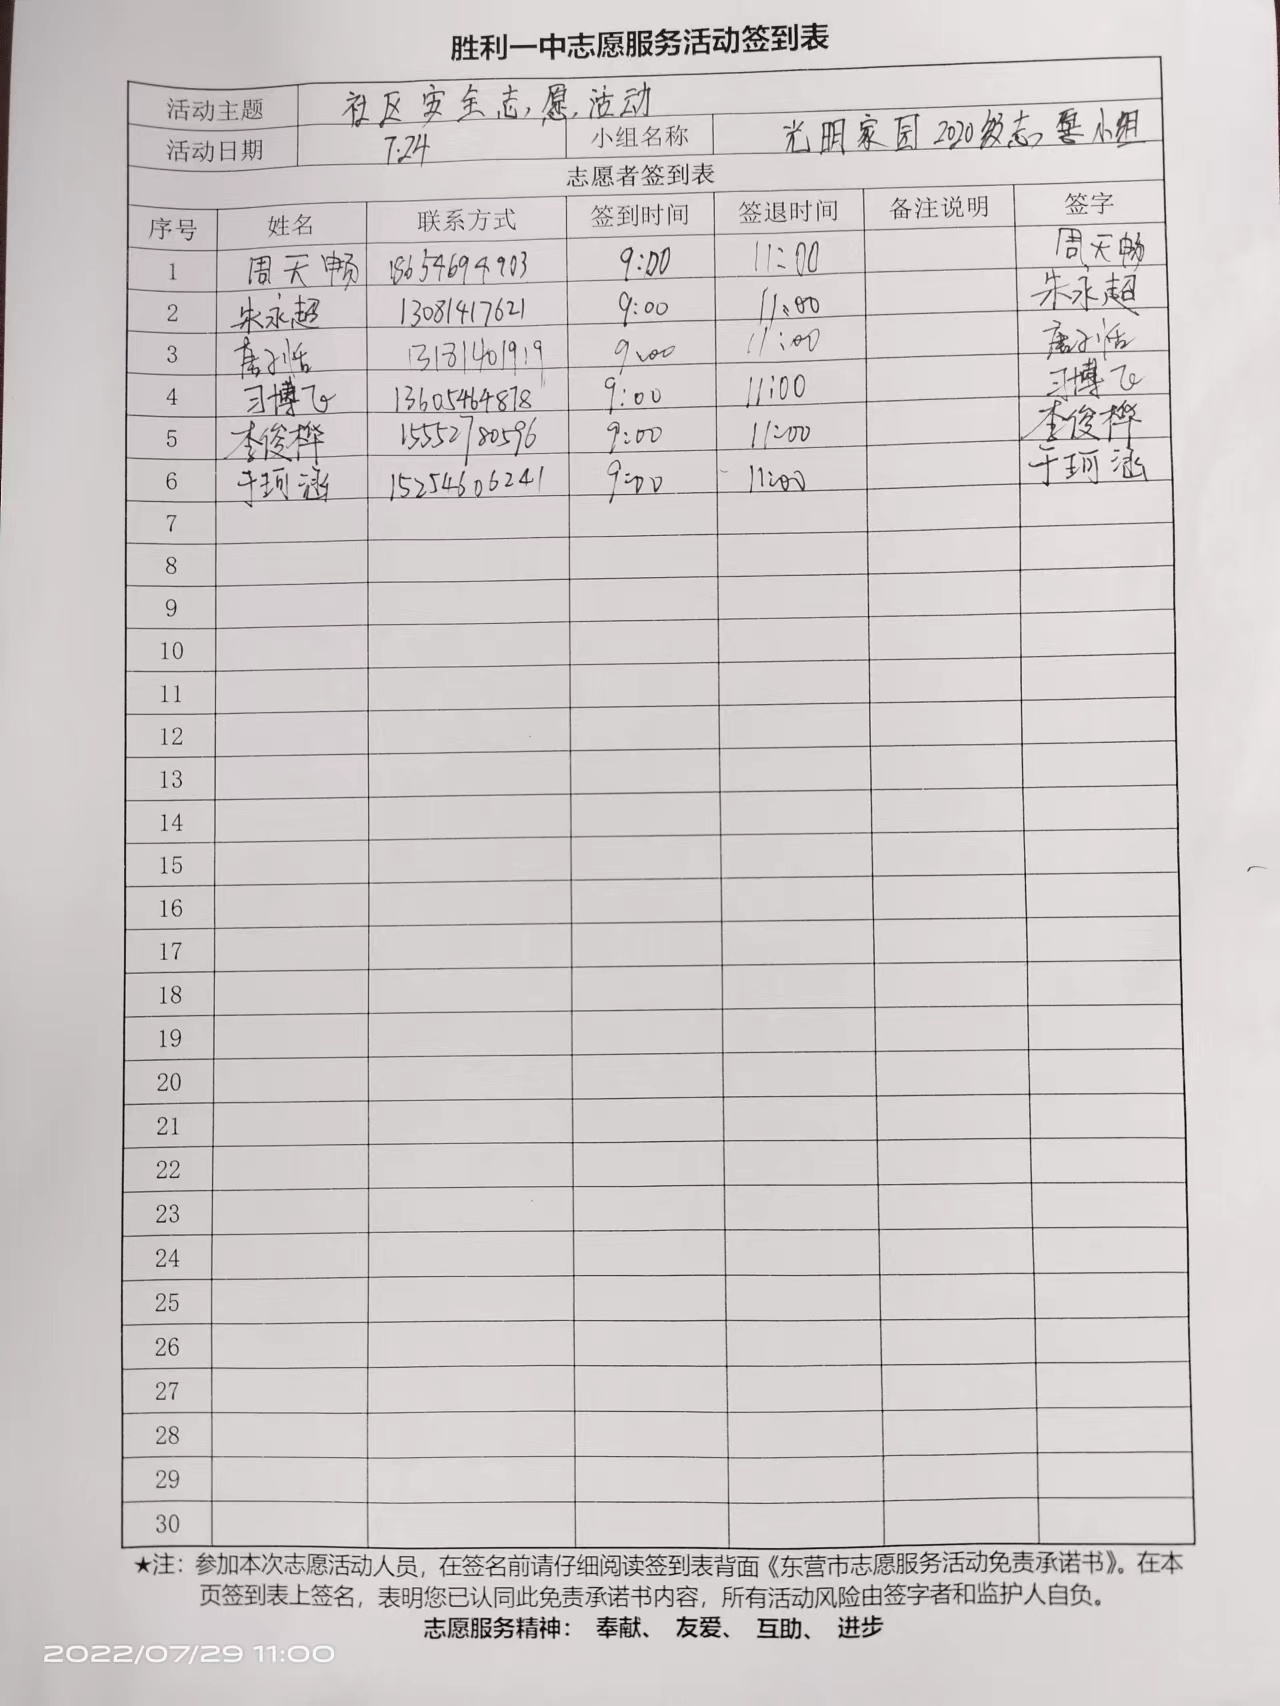 胜利一中志愿服务活动签到表
活动主题 社区安全志愿活动
活动日期 7.24 小组名称 光明家园2020级志愿小组
志愿者签到表
序号 姓名 联系方式 签到时间 签退时间 备注说明 签字
1 周天畅 18654694903 9:00 11:00 周天畅
2 朱永超 13081417621 9:00 11:00 朱永超
3 13181401919 9:00 11:00
4 习博飞 13605464878 9:00 11:00 习博飞
5 李俊桦 15552780596 9:00 11:00 李俊桦
6 于珂涵 15254606241 9:00 11:00 于珂涵
7
8
9
10
11
12
13
14
15
16
17
18
19
20
21
22
23
24
25
26
27
28
29
30
★注：参加本次志愿活动人员，在签名前请仔细阅读签到表背面《东营市志愿服务活动免责承诺书》。在本
页签到表上签名，表明您已认同此免责承诺书内容，所有活动风险由签字者和监护人自负。
志愿服务精神： 奉献、 友爱、 互助、 进步
2022/07/29 11:00